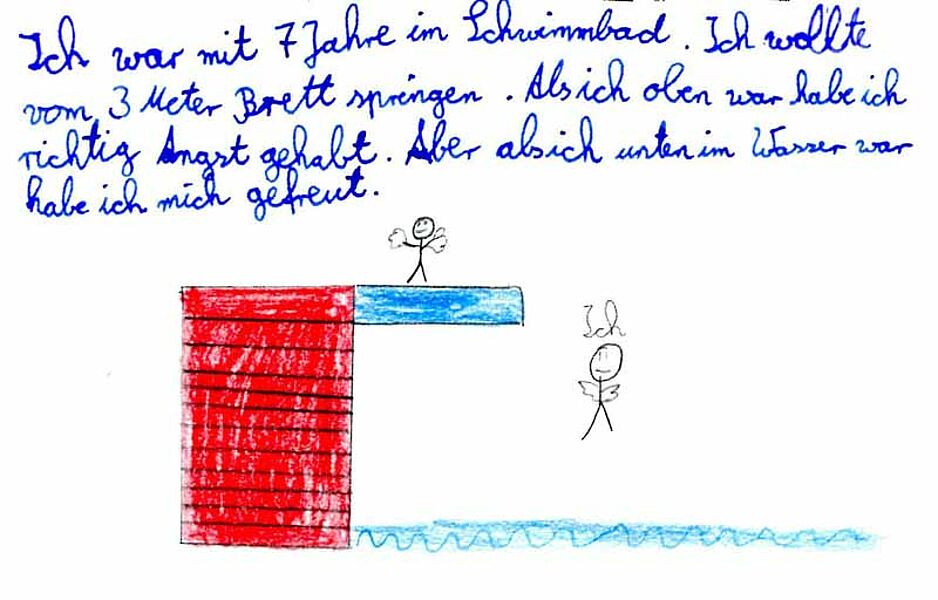 Ich war mit 7 Jahre im Schwimmbad. Ich wollte
vom 3 Meter Brett springen. Als ich oben war habe ich
richtig Angst gehabt. Aber als ich unten im Wasser war
habe ich mich gefreut.
Ich